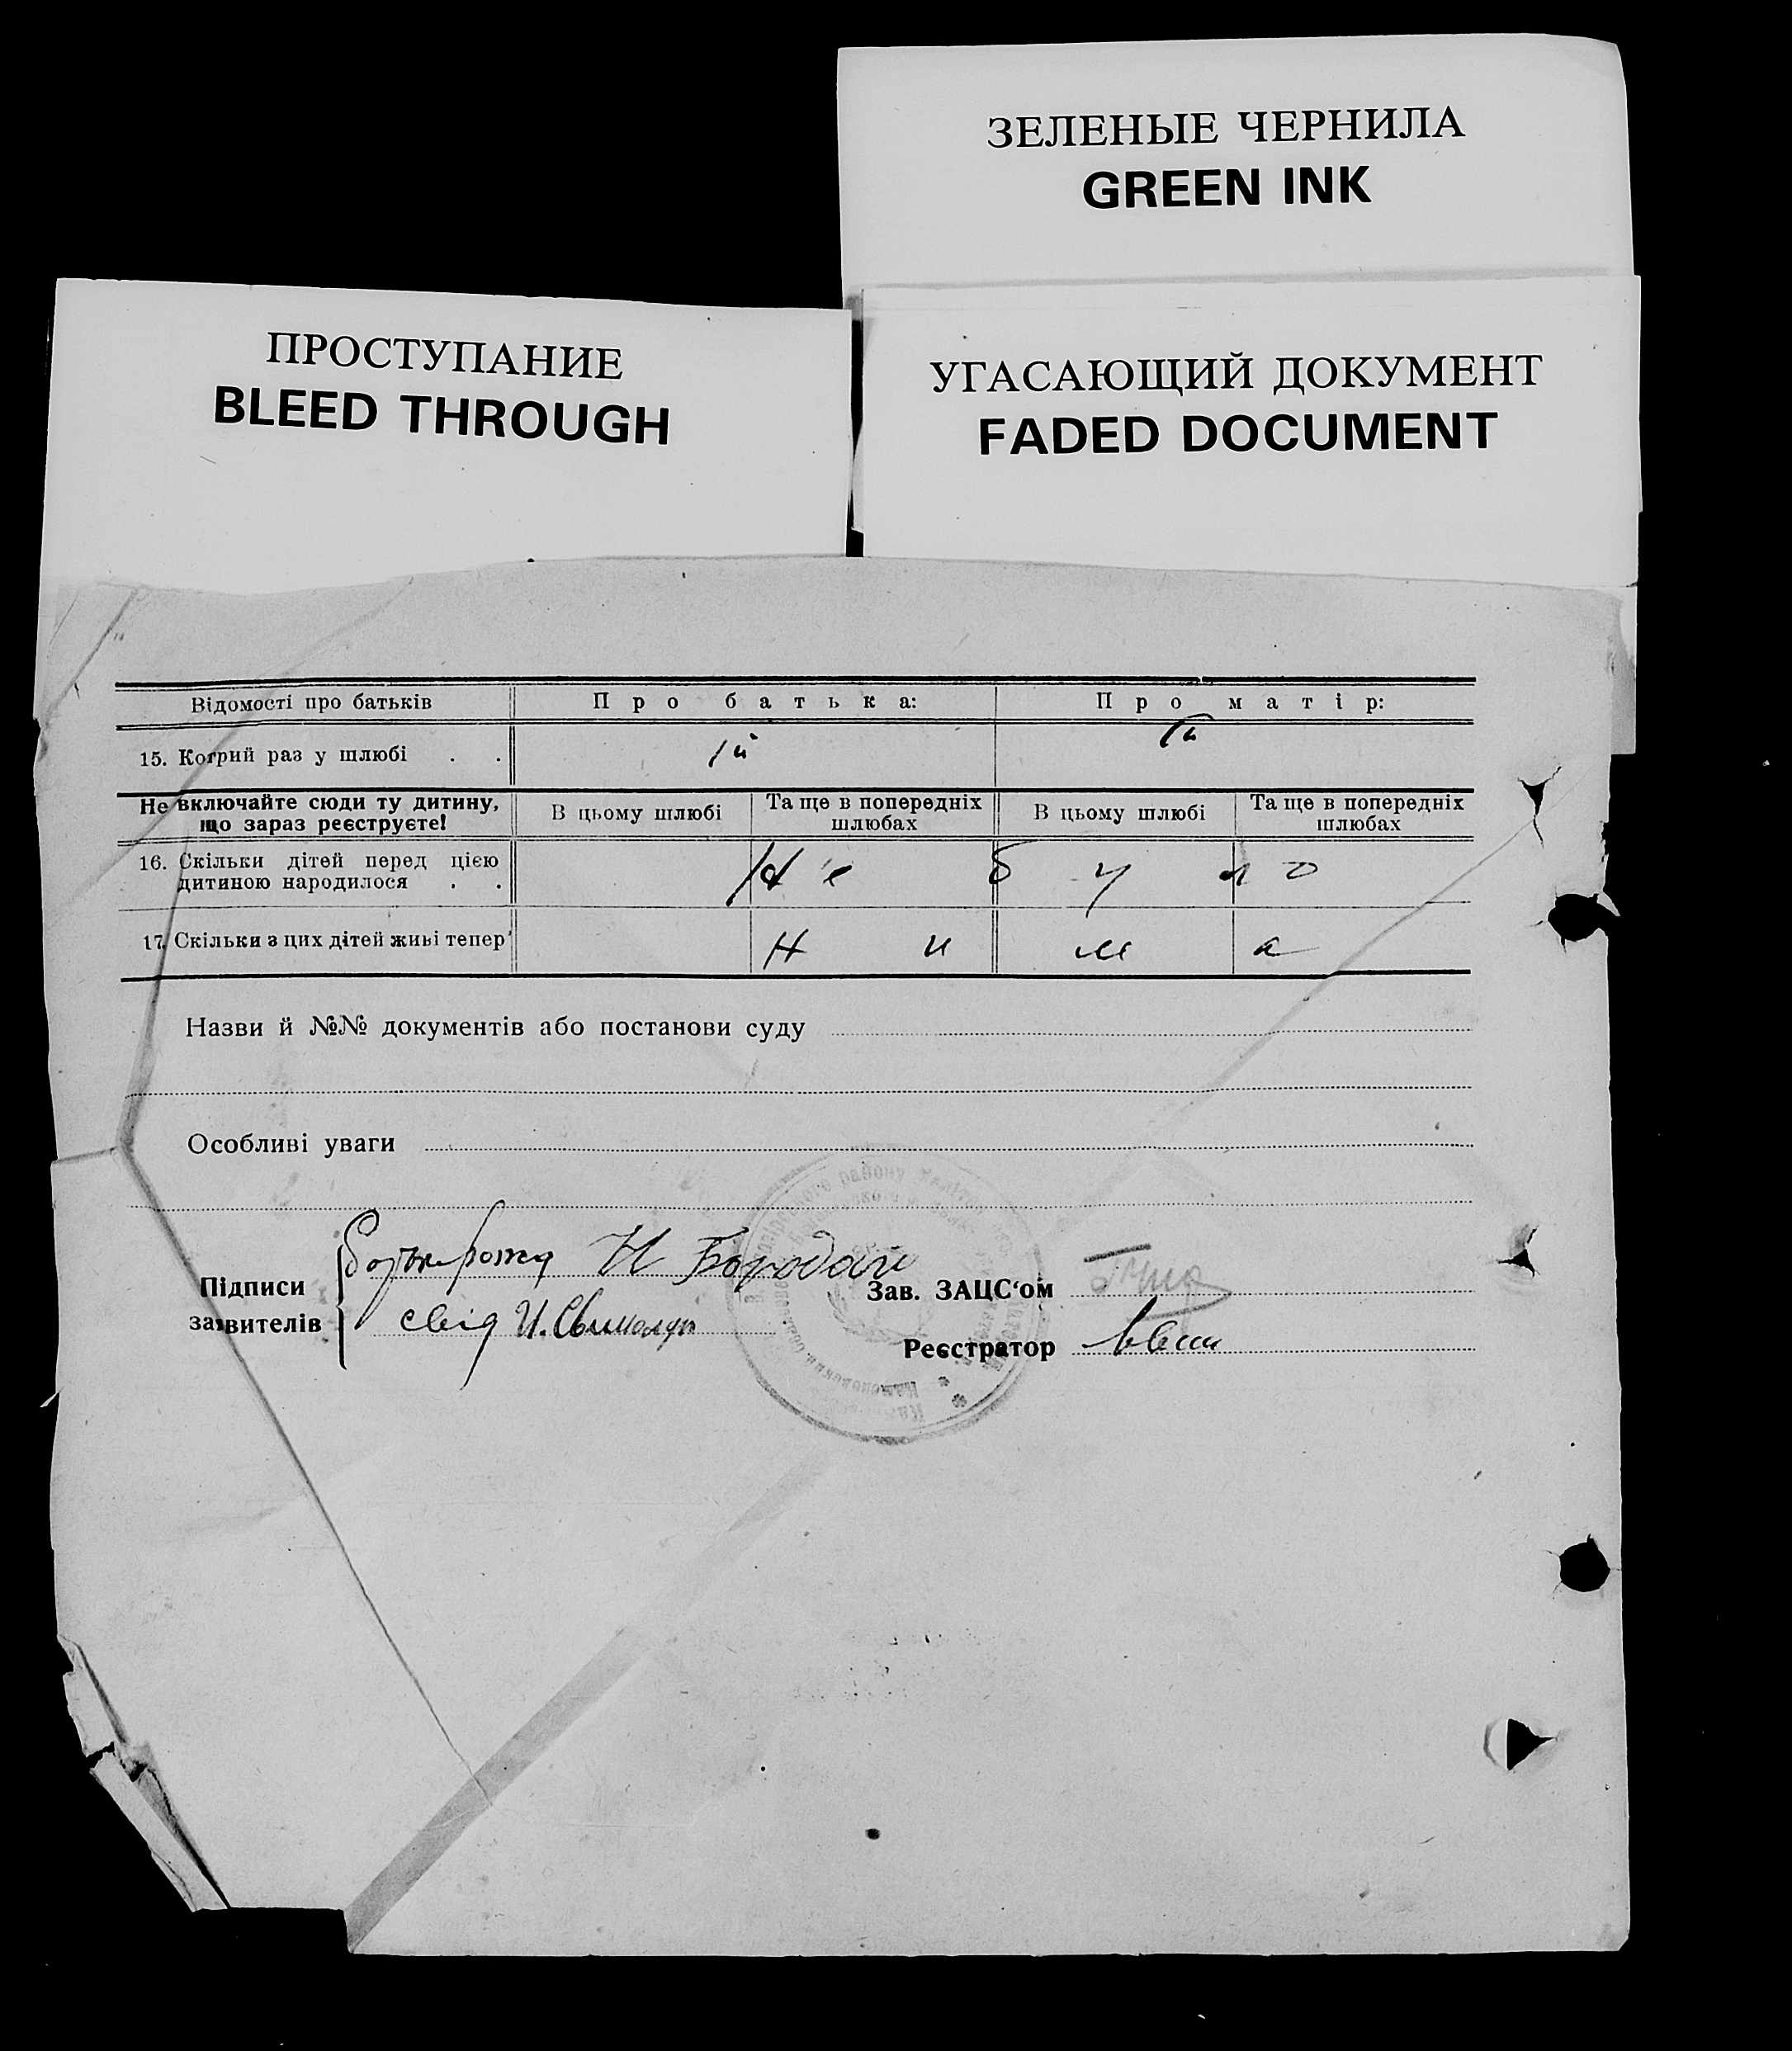 ЗЕЛЕНЫЕ ЧЕРНИЛА
GREEN INK
ПРОСТУПАНИЕ
BLEED THROUGH
УГАСАЮЩИЙ ДОКУМЕНТ
FADED DOCUMENT
Відомості про батьків Про батька: Про матір:
15. Котрий раз у шлюбі . . 1й 1й
Не включайте сюди ту дитину, що зараз реєструєте! В цьому шлюбі Та ще в попередніх шлюбах В цьому шлюбі Та ще в попередніх шлюбах
16. Скільки дітей перед цією
дитиною народилося . . Не було
17. Скільки з цих дітей живі тепер нима
Назви й №№ документів або постанови суду
Особливі уваги
Підписи
заявителів
Н Бородай
свід И.
Зав. ЗАЦС'ом
Реєстратор
району